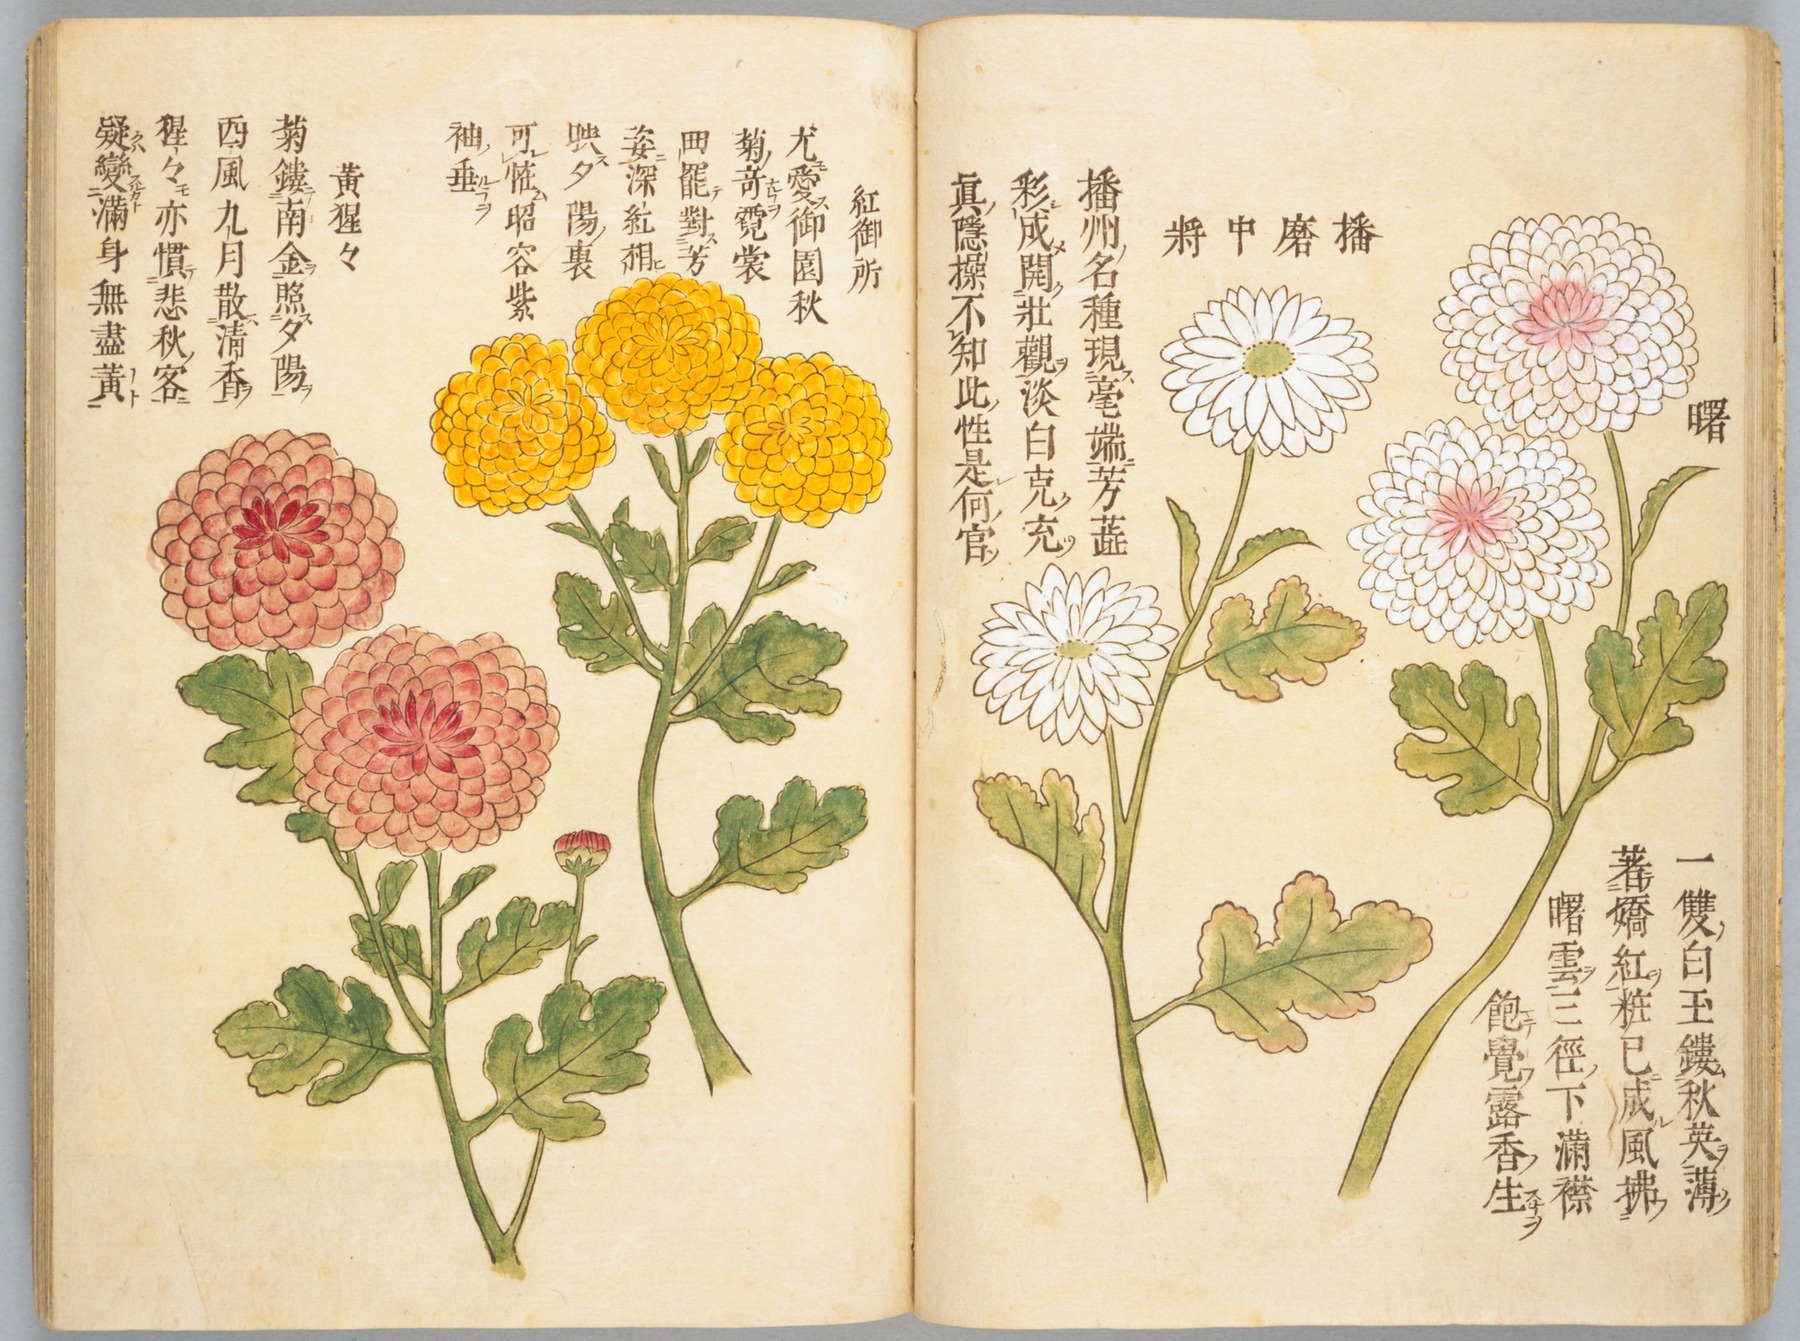 曙
一雙白玉鏤秋英薄
著嬌紅粧已成風拂
曙雲三徑下滿襟
飽覺露香生
播磨中將
播州名種現毫端芳蕋
彩成開壯觀淡白克充
眞隱操不知此性是何官
紅御所
尤愛御園秋
菊奇霓裳
罷對芳
姿深紅相
映夕陽裏
可怪昭容紫
袖垂
黃猩々
菊鏤南金照夕陽
西風九月散清香
猩々亦慣悲秋客
疑變滿身無盡黃